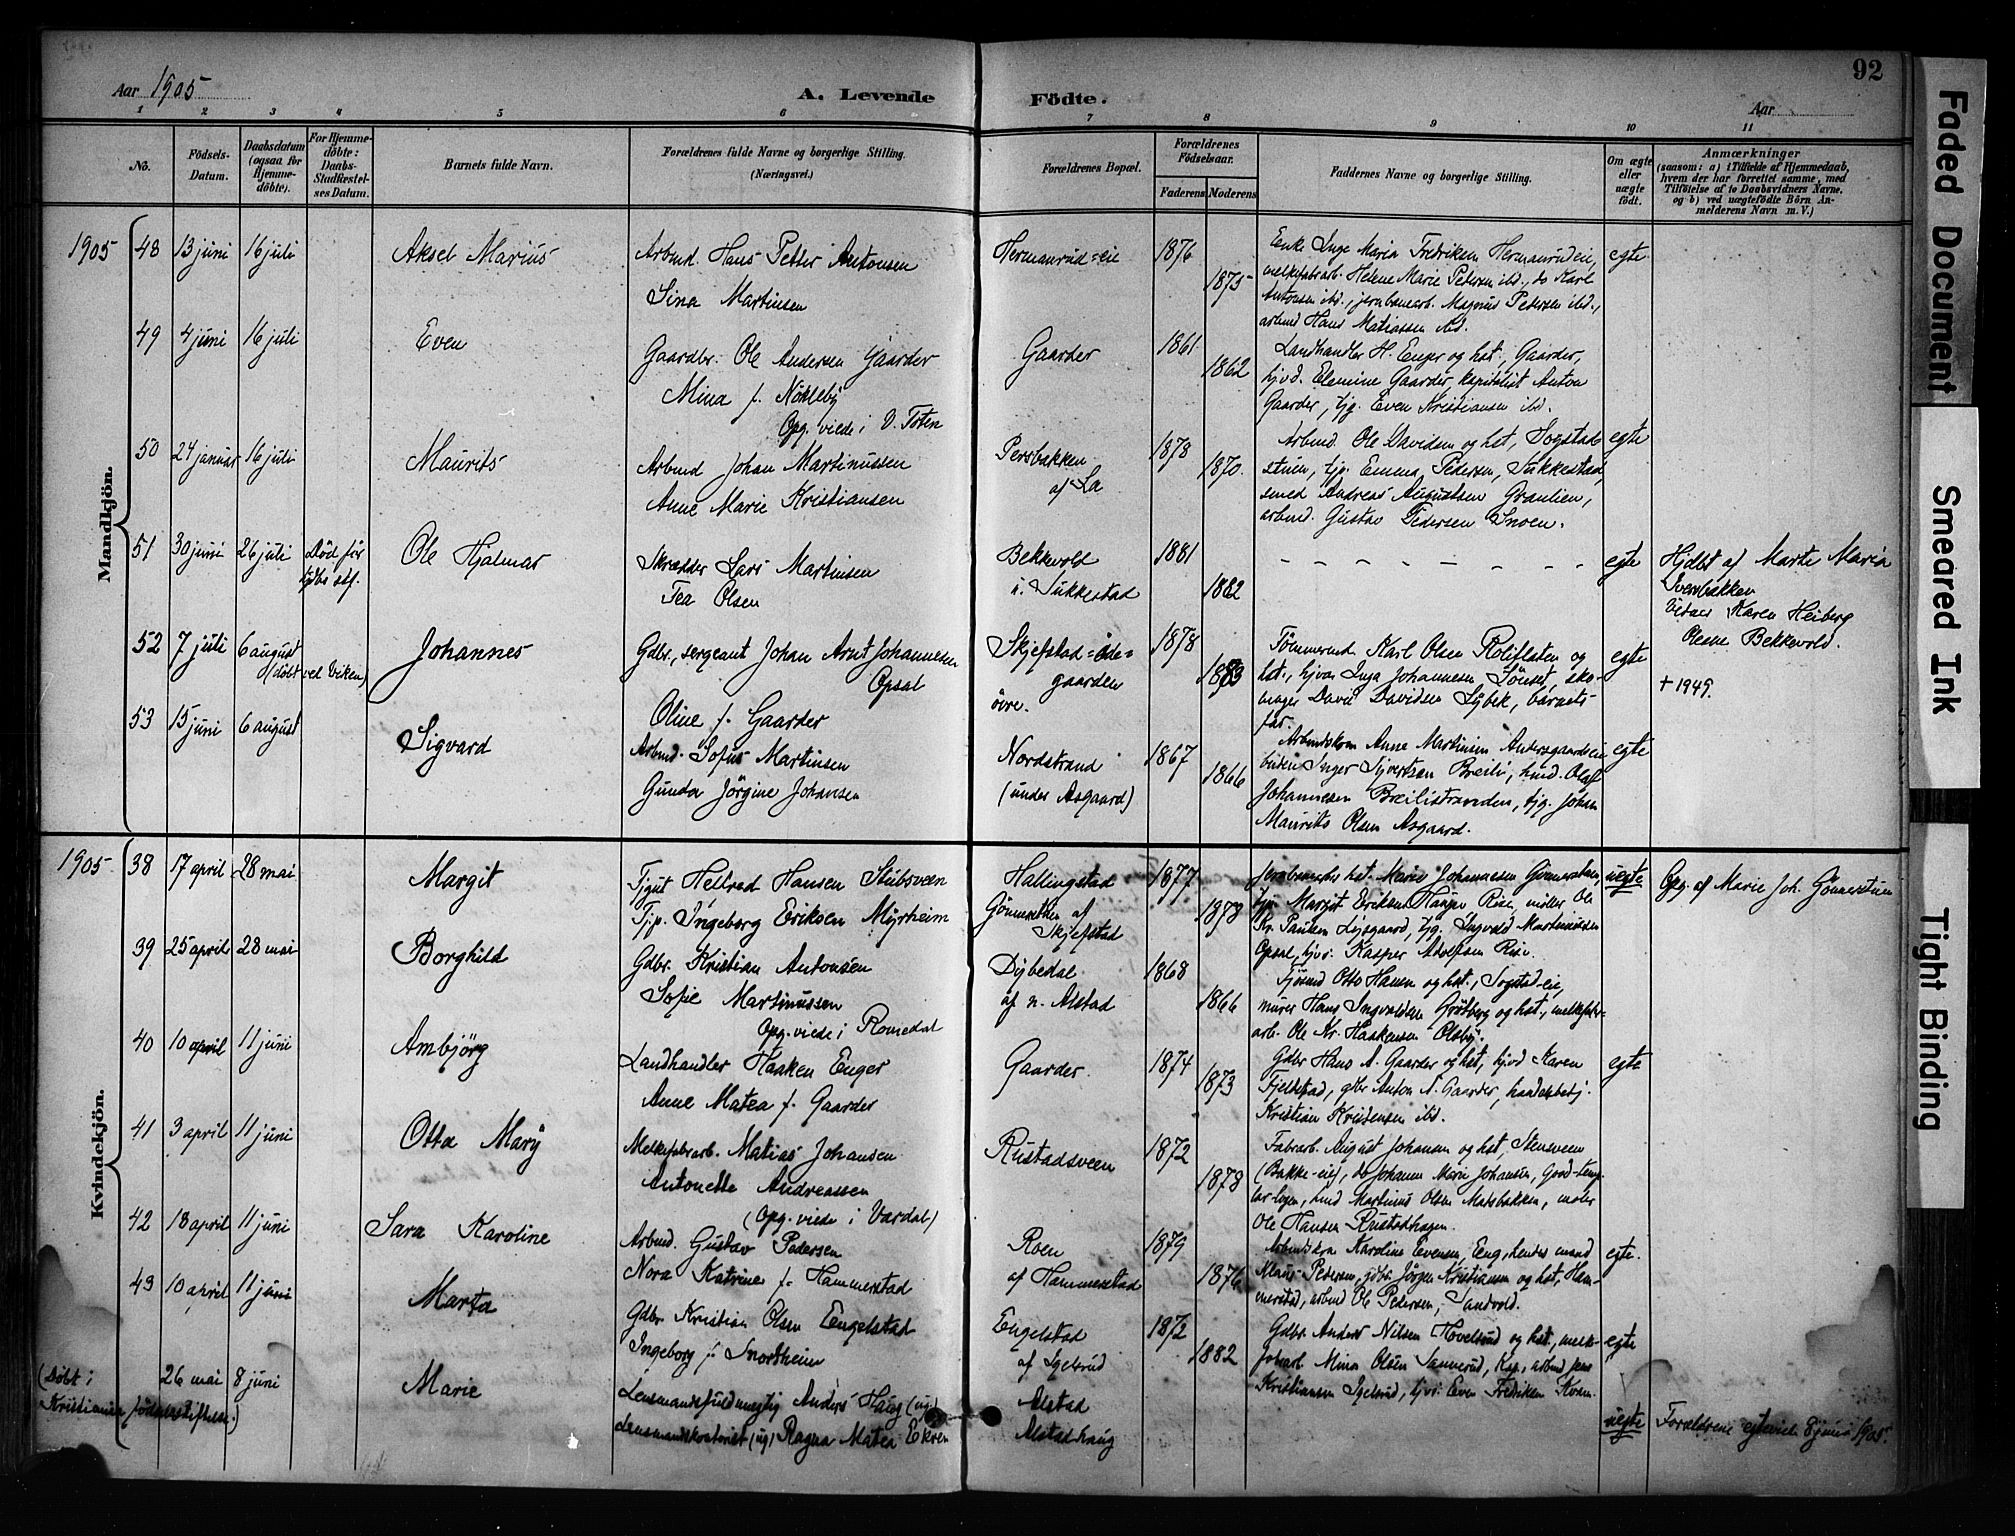 Aar 1905
A. Levende Födte.
Aar
92
1 2 3 4 5 6 7 8 9 10 11
No.
Födsels-Datum.
Daabsdatum (ogsaa for Hjemme-döbte).
For Hjemme-döbte: Daabs-Stadfæstel-ses Datum.
Barnets fulde Navn.
Forældrenes fulde Navne og borgerlige Stilling.
(Næringsvei.)
Forældrenes Bopæl.
Forældrenes Födselsaar.
Faderens Moderens
Faddernes Navne og borgerlige Stilling.
Om ægte eller uægte födt.
Anmærkninger
(saasom: a) i Tilfælde af Hjemmedaab,
hvem der har forrettet samme, med
Tilföielse af to Daabsvidners Navne,
og b) ved uægtefödte Börn An-
melderens Navn m. V.)
Mandkjön.
1905 48 13 juni 16 juli Aksel Marius
Arbmd. Hans Petter Antonsen
Sina Martinsen
Hermanrud=eie 1876 1875
Enke Inge Maria Fredriksen Hermanrudeie,
melkefabrarb. Helene Marie Pedersen ibd., do Karl
Antonsen ibd., jernbanearb. Magnus Pedersen ibd.,
arbmd Hans Matiassen ibd.
egte
49 4 juni 16 juli Even
Gaardbr. Ole Andersen Gaarder
Mina f. Nökleby
Opg. viede i V. Toten
Gaarder 1861 1862
Landhandler H. Enger og hst., Gaarder,
hjvd. Elamine Gaarder, kapitalist Anton
Gaarder, tjg. Even Kristiansen ibd.
50 24 januar 16 juli Maurits
Arbmd Johan Martinussen
Anne Marie Kristiansen
Persbakken
af La
1878 1870.
Arbmd. Ole Davidsen og hst, Sogstad
stuen, tjg. Emma Pedersen, Sukkestad,
smed Andreas Augustsen Granlien,
arbmd. Gustav Pedersen Snoen.
egte
51 30 juni 26 juli Död för
dbs stf.
Ole Hjalmar
Skrædder Lars Martinsen
Tea Olsen
Bekkevold
u. Sukkestad
1881 1882
- - - - - - - -
egte
Hjdbt af Marte Maria
Sversbakken
Vidner Karen Heiberg
Olene Bekkevold.
52 7 juli 6 august
(döbt ved Viken)
Johannes
Gdbr., sergeant Johan Arnt Johannesen
Opsal
Oline f. Gaarder
Skjefstad=öde=
gaarden
övre.
1878 1883
Tömmermd. Karl Olsen Roliflaten og
hst., hjvar Inga Johannesen Lönset, sko-
mager David Davidsen Lybek, barnets
far.
egte
+ 1949.
53 15 juni 6 august Sigvard
Arbmd. Sofus Martinsen
Gunda Jörgine Johansen
Nordstrand
(under Asgaard)
1867 1866
Arbmdskone Anne Martinsen Andersgaardseie
Inger Syvertsen Breili, hmd. Olaf
Johannesen Breilistranden, tjg. Johan
Maurits Olsen Asgaard.
egte
Kvindekjön.
1905 38 17 april 28 mai Margit
Tjgut Helrad Hansen Stubsveen
Tjp. Ingeborg Eriksen Myrheim
Hallingstad
Gönnerstuen af
Skjefstad
1877 1878
hst. Marie Johannesen Gönnerstuen,
tjp. Margit Eriksen Rise, möller Ole
Kr. Paulsen Lysgaard, tjg. Ingvald Martinussen
Opsal, hjvs. Kasper Adolfsen Rise.
uegte
Opg. af Marie Joh. Gönnerstuen
39 25 april 28 mai Borghild
Gdbr. Kristian Antonsen
Sofie Martinussen
Opg. viede i Romedal
Dybedal
af n. Alstad
1868 1866
Tjsmd Otto Hansen og hst., Sogstad-eie,
murer Hans Ingvaldsen og hst., melkefabr-
arb. Ole Kr. Haakensen Olsby.
40 10 april 11 juni Ambjörg
Landhandler Haaken Enger
Anne Matea f. Gaarder
Gaarder 1874 1873
Gdbr Hans A. Gaarder og hst, hjvd Karen
Fjeldstad, gbr Anton A. Gaarder, handelsbetj.
Kristian Kristensen ibd.
egte
41 3 april 11 juni Otta Mary
Melkefabrarb. Matias Johansen
Antonette Andreassen
(Opg. viede i Vardal)
Rustadsveen 1872 1878
Fabrarb. August Johansen og hst, Stensveen
(Bakke-eie), do Johanne Marie Johansen, Good-temp-
lar-logen, hmd Martinus Olsen Matsbakken, maler
Ole Hansen Rustadhagen.
42 18 april 11 juni Sara Karoline
Arbmd. Gustav Pedersen
Nora Katrine f. Hammerstad
Roen
af Hammerstad
1879 1876
Arbmdskra Karoline Evensen, Eng, hendes mand
Klaus Pedersen, gdbr. Jörgen Kristiansen og hst, Ham-
merstad, arbmd Ole Pedersen, Sandvold.
egte.
43 10 april 11 juni Marta
Gdbr Kristian Olsen Engelstad
Ingeborg f. Snortheim
Engelstad
af Igelsrud
1872 1882
Gdbr. Anders Nilsen Hovelsrud og hst, melk-
fabrarb Mina Olsen Sannerud, Kap, arbmd Jens
Kristiansen Igelsrud, hjvs: Even Fredriksen Kvam.
egte
(Döbt i
Kristiania födselsstiftelse.)
26 mai 8 juni Marie
Lensmandsfuldmegtig Anders Haug (ug.)
Lensmandskontorist (ug) Ragna Matea Ekren
Alstad
Alstadhaug
uegte
Forældrene egteviet 8 juni 1905.
Faded Document
Smeared Ink
Tight Binding